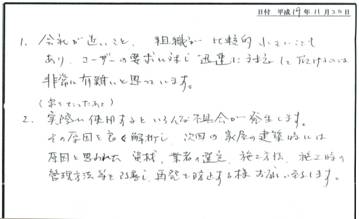 日付 平成19年11月20日
1. 会社が近いこと、組織が比較的小さいことも
あり、ユーザーの要求に対し迅速に対応して頂けるのは
非常に有難いと思っています。
2. 実際に使用するといろんな不具合が発生します。
その原因を良く解析し、次回の家屋の建築時には
原因と思われた資材、業者の選定、施工方法、施工時の
管理方法等を改善し、再発を防止する様お願い致します。